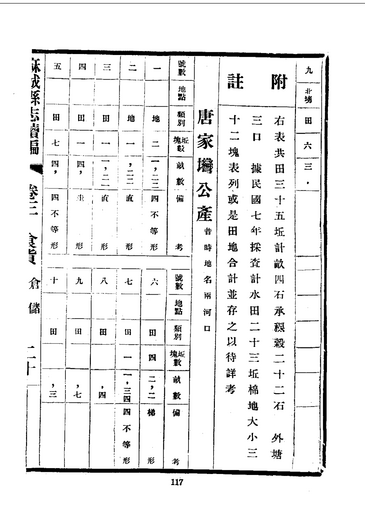 九 北塆 田 六 三・
附註
右表共田三十五坵計畝四石承稞穀二十二石 外塘
三口 據民國七年採查計水田二十三坵棉地大小三
十二塊表列或是田地合計並存之以待詳考
唐家壪公產 昔時地名兩河口
號數 地點 類別 坵塊數 畝數 備考
一 地 二 一,二二 四不等形
二 地 一 一,二二 直形
三 田 一 一,二二 直形
四 田 一 四, 圭形
五 田 七 四, 四不等形
號數 地點 類別 坵塊數 畝數 備考
六 田 四 二,二 梯形
七 田 一 一,三四 四不等形
八 田 ,四
九 田 ,七
十 田 ,三
麻城縣志續編 卷三 食貨 倉儲 二十
117